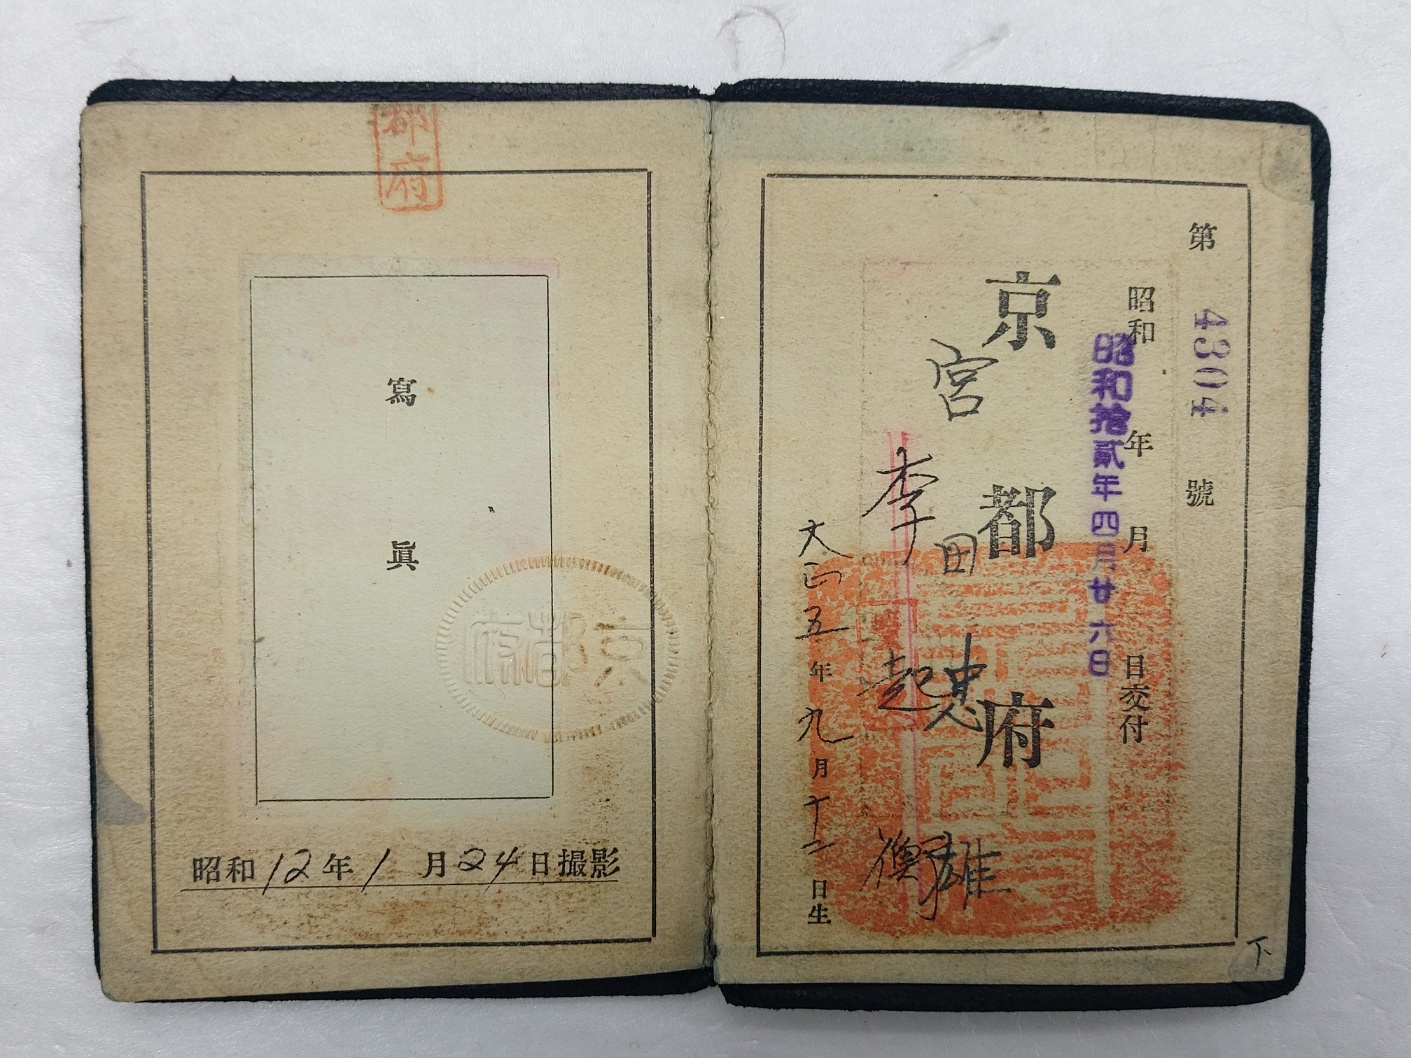 第4304號
昭和 年 月 日交付
昭和拾貳年四月廿六日
京都府
宮田忠雄
李起衡
大正五年九月十二日生
下
都府
寫眞
京都府
昭和12年1月24日撮影